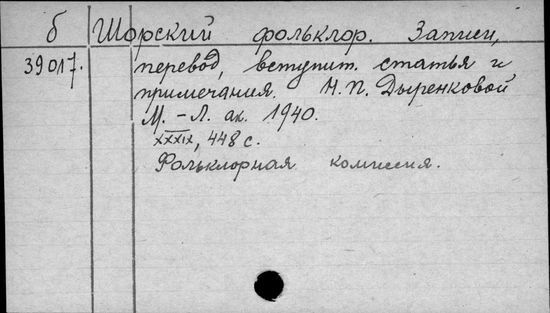 б Шорский фольклор. Записи,
39017. перевод, вступит. статья и
примечания. Н. П. Дыренковой
М. - Л. ак. 1940.
XXXIX, 448 с.
Фольклорная комиссия.